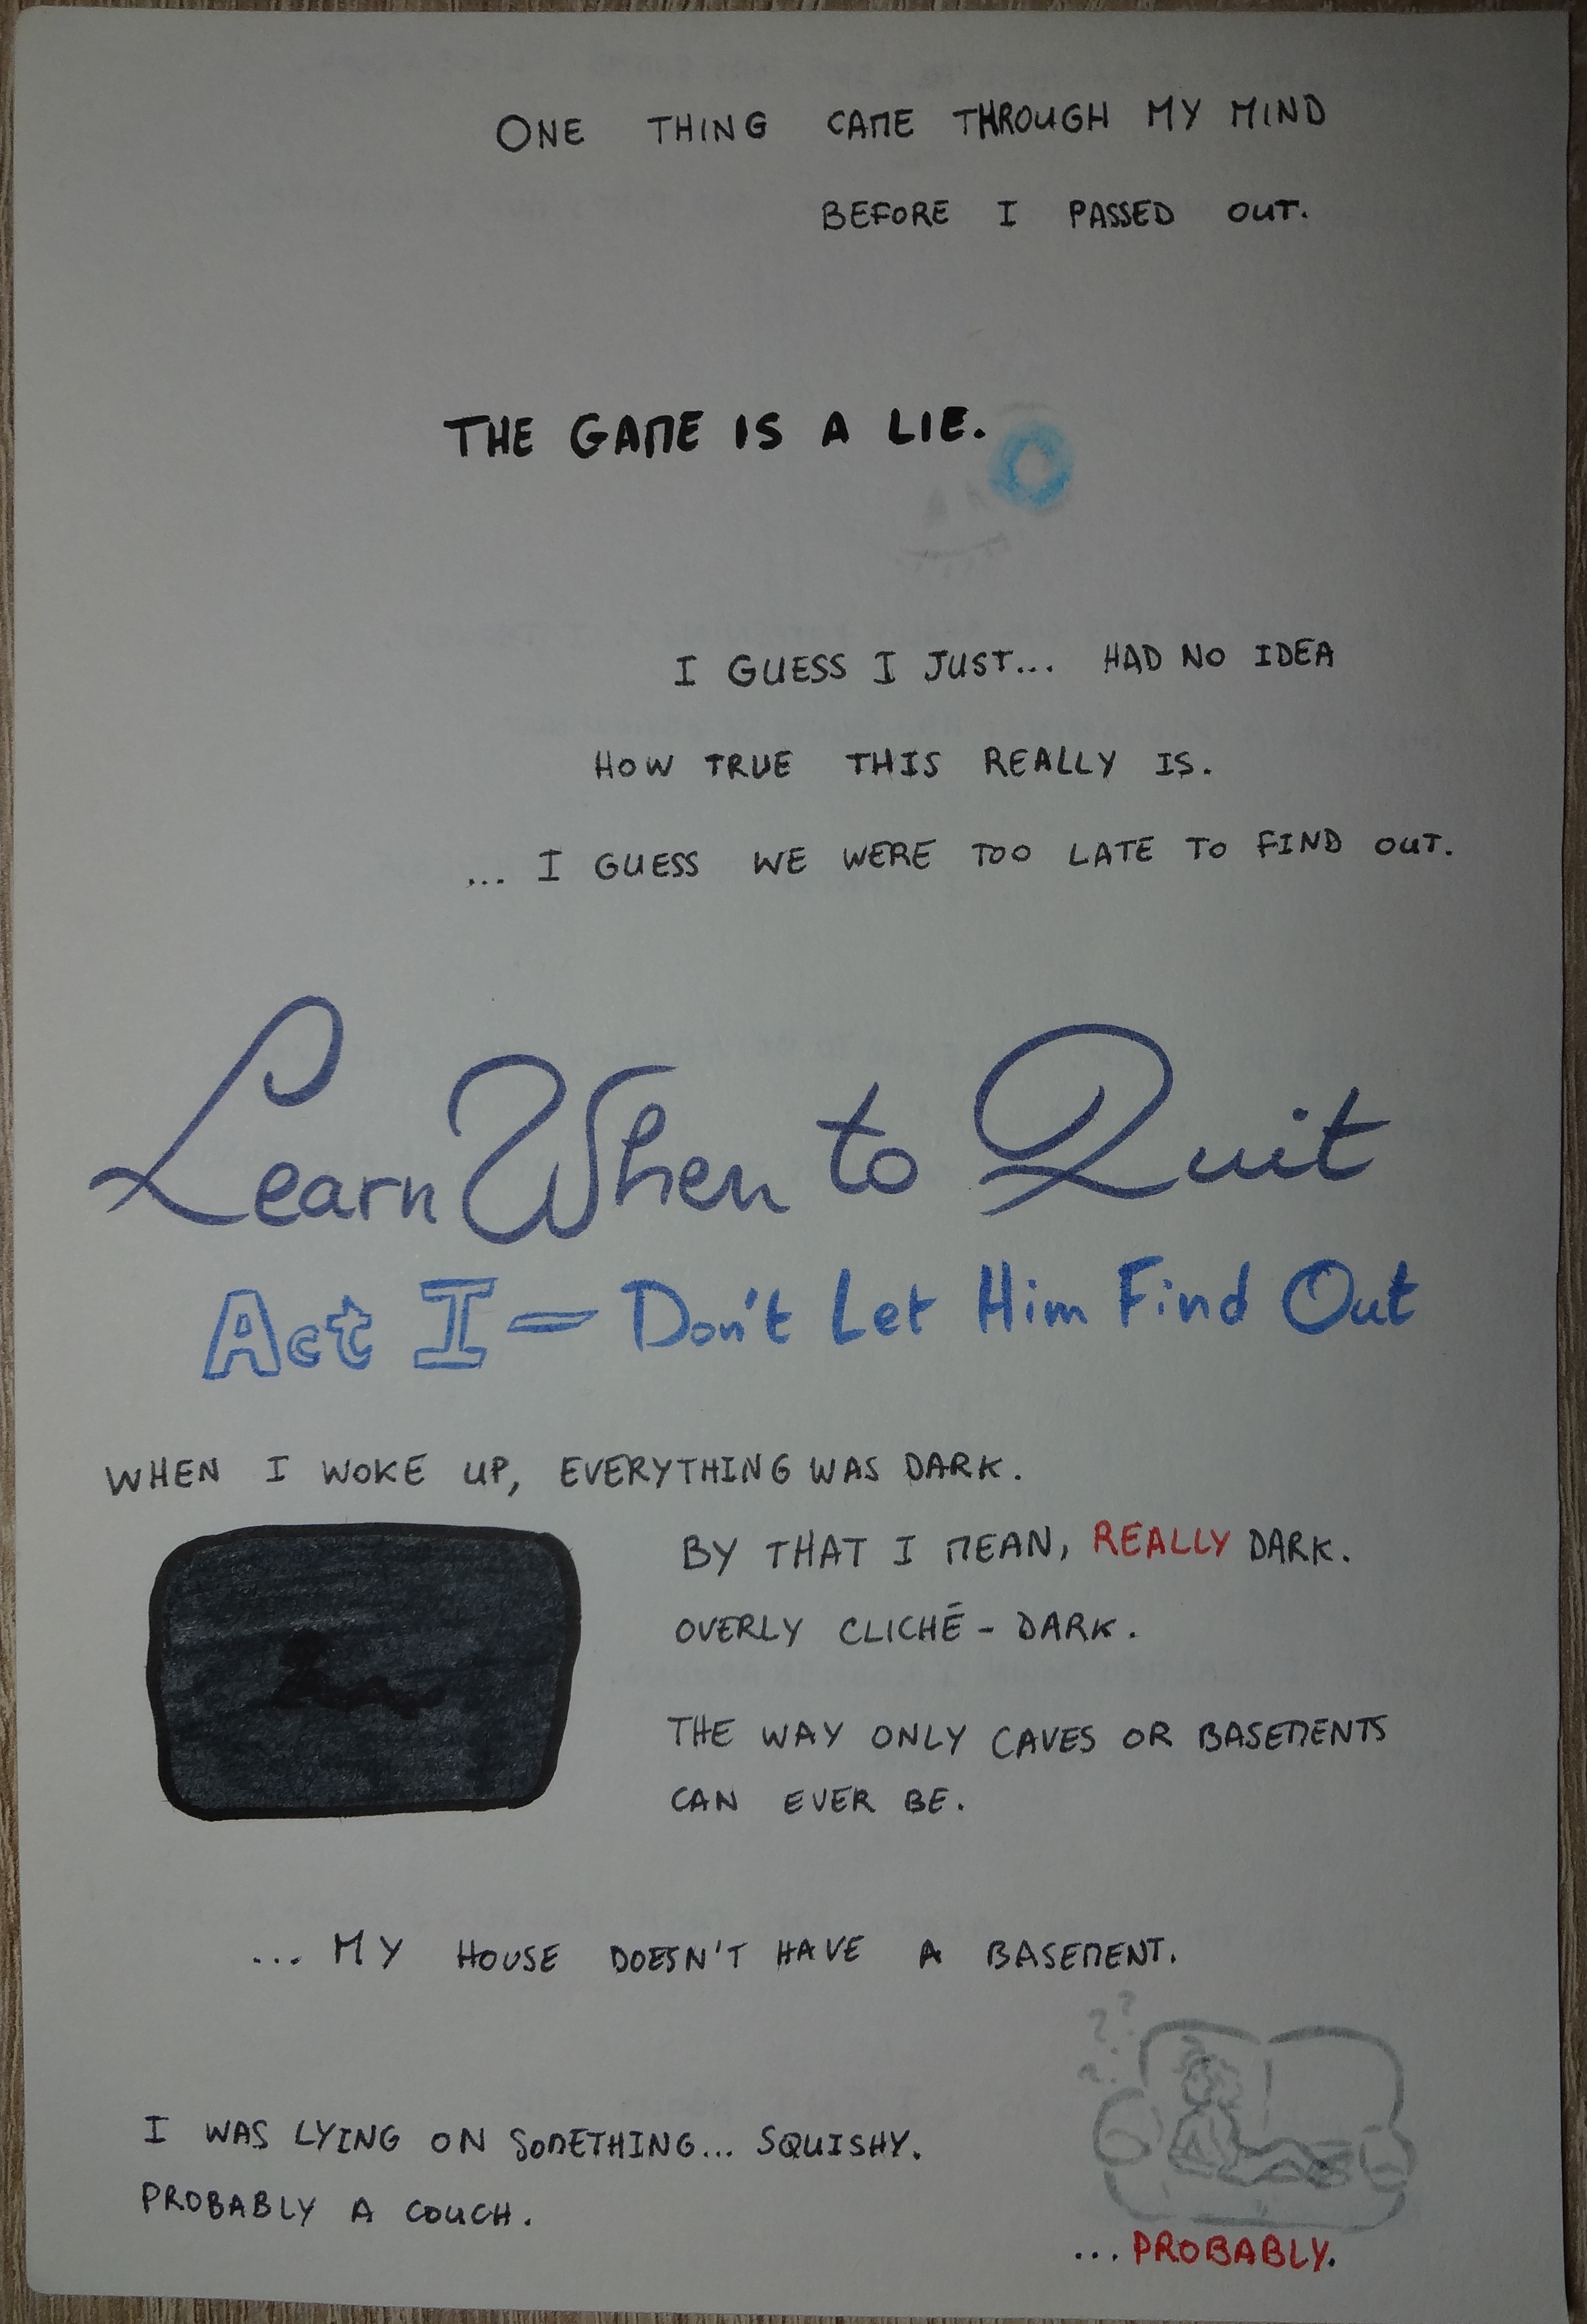 ONE THING CAME THROUGH MY MIND
BEFORE I PASSED OUT.
THE GAME IS A LIE.
I GUESS I JUST... HAD NO IDEA
HOW TRUE THIS REALLY IS.
... I GUESS WE WERE TOO LATE TO FIND OUT.
Learn When to Quit
Act I - Don't Let Him Find Out
WHEN I WOKE UP, EVERYTHING WAS DARK.
BY THAT I MEAN, REALLY DARK.
OVERLY CLICHÉ - DARK.
THE WAY ONLY CAVES OR BASEMENTS
CAN EVER BE.
... MY HOUSE DOESN'T HAVE A BASEMENT.
???
I WAS LYING ON SOMETHING... SQUISHY.
PROBABLY A COUCH.
... PROBABLY.